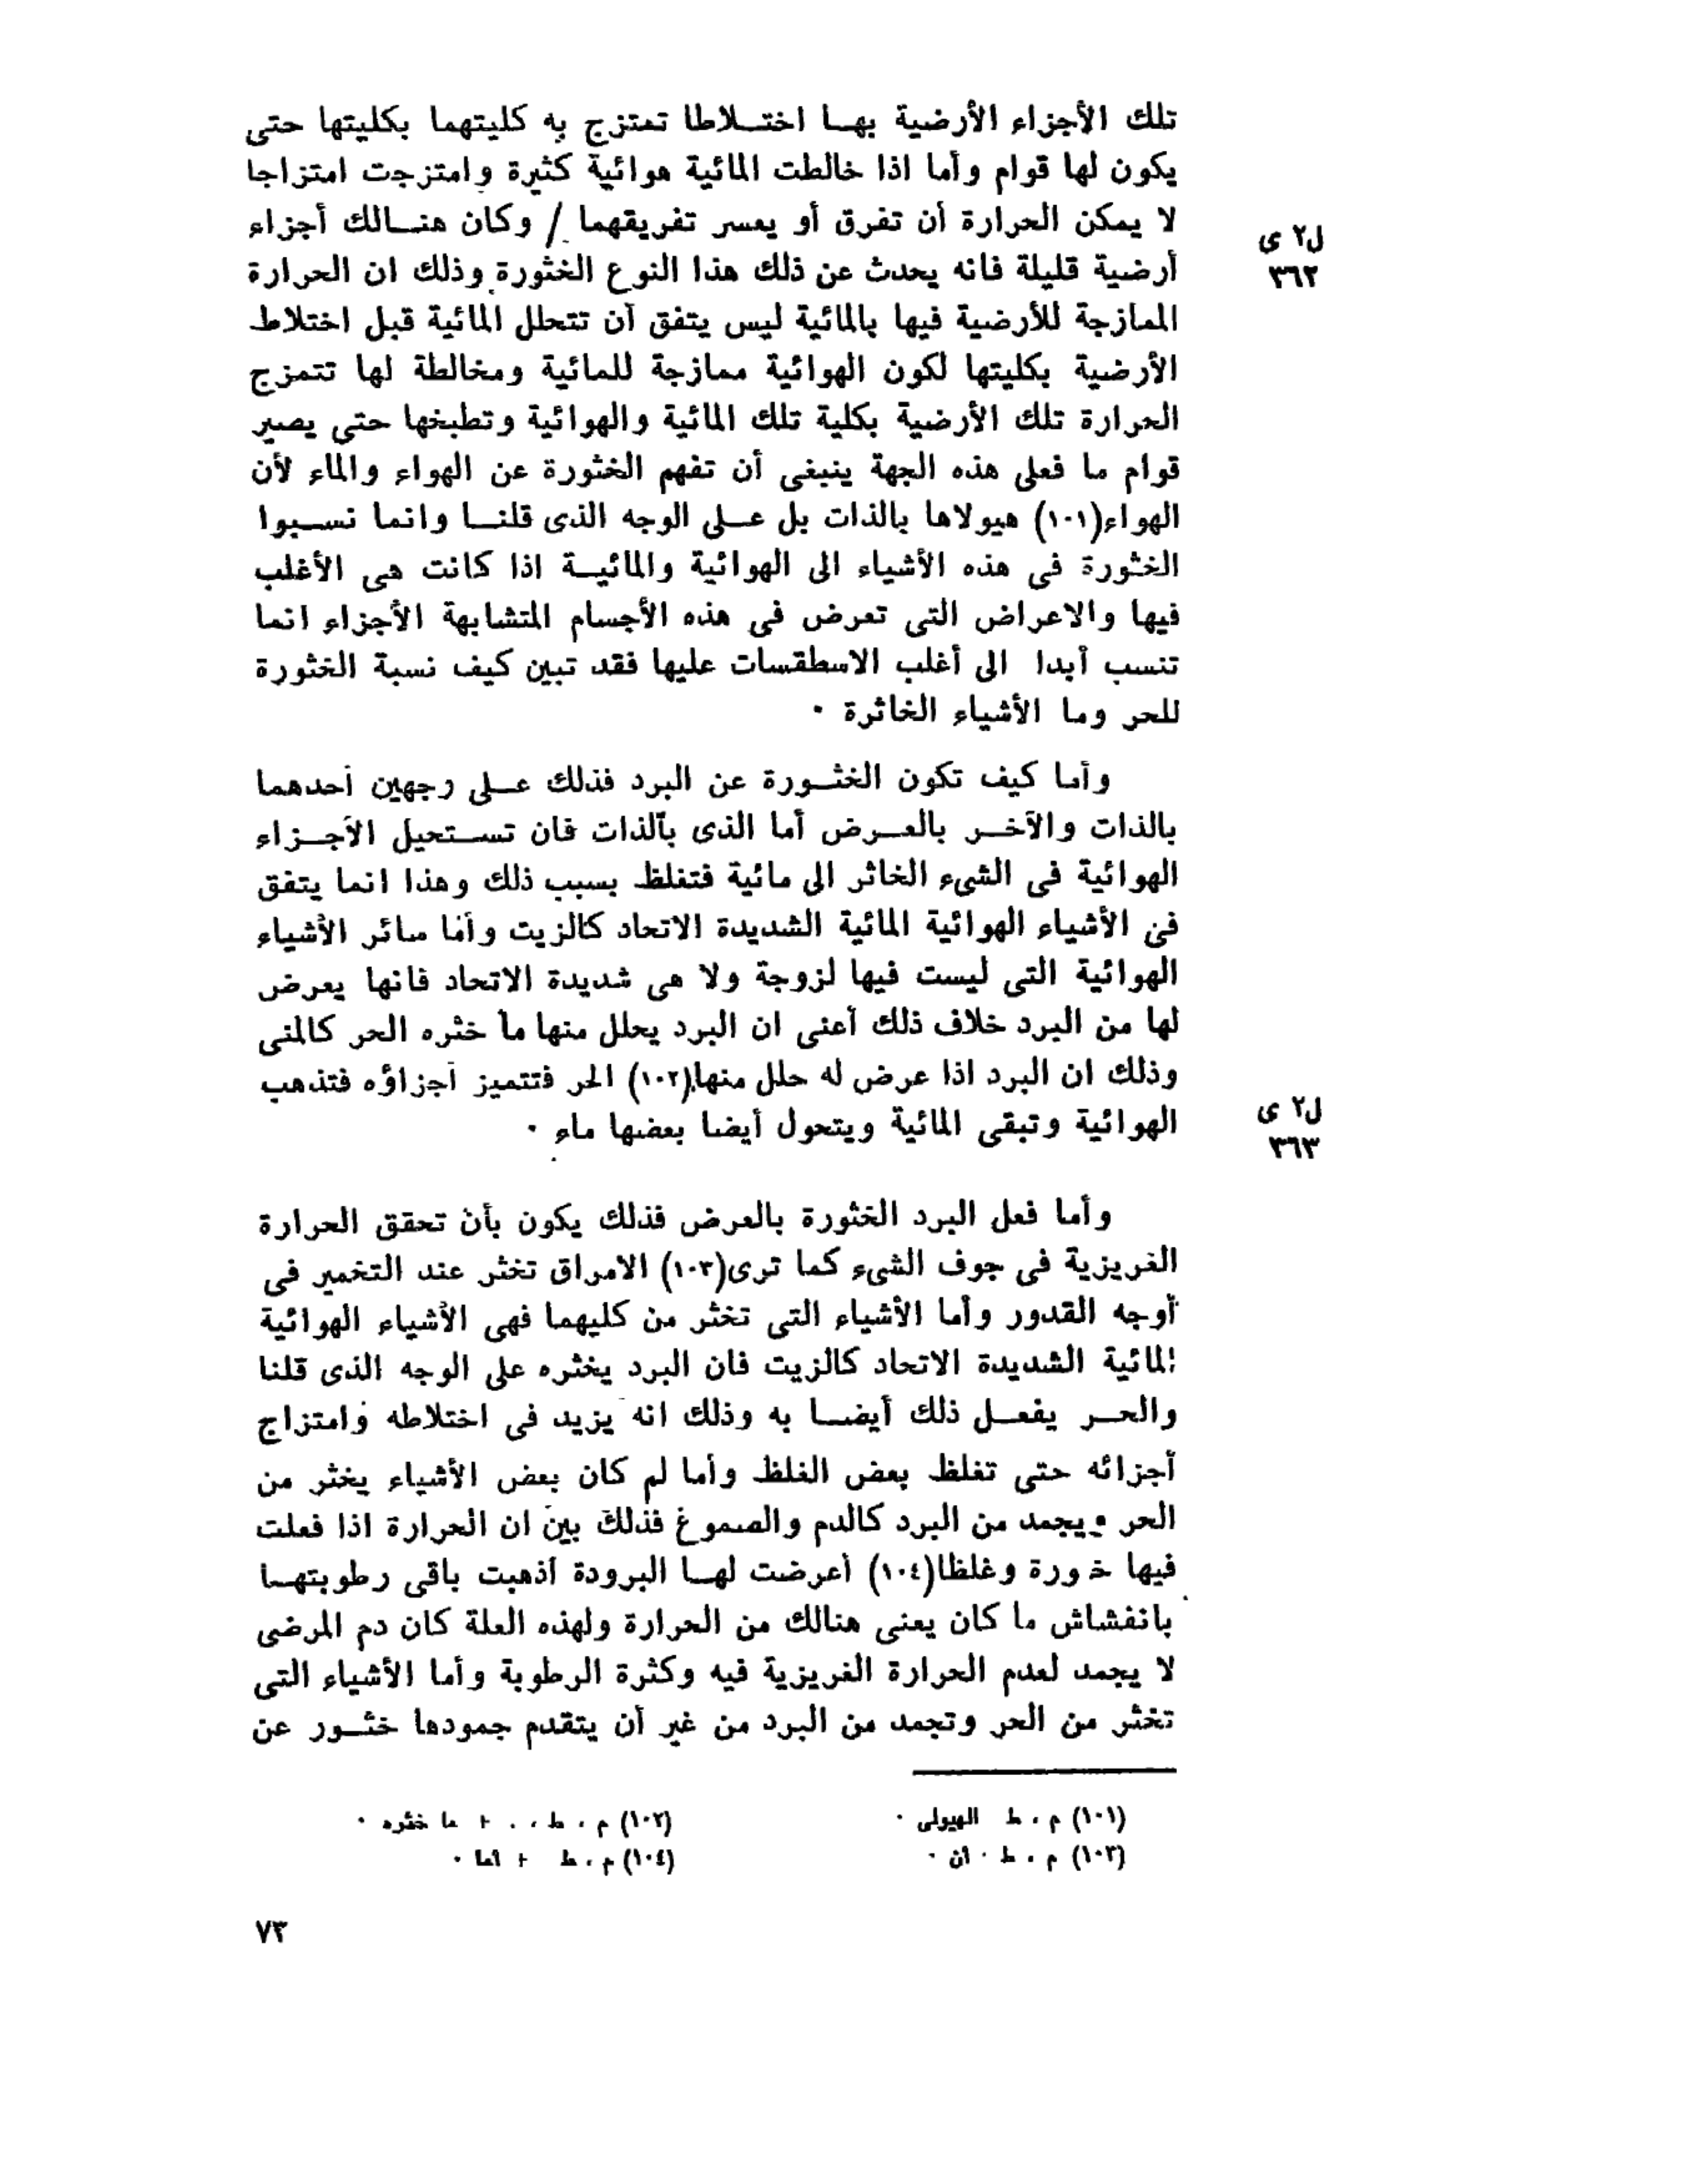 تلك الأجزاء الأرضية بهـا اختـلاطا تمتزج به كليتهما بكليتها حتى
يكون لها قوام وأما اذا خالطت المائية هوائية كثيرة وامتزجت امتزاجا
لا يمكن الحرارة أن تفرق أو يعسر تفريقهما / وكان هنـالك أجزاء
ل٢ ى
٣٦٢
أرضية قليلة فانه يحدث عن ذلك هذا النوع الخثورة وذلك ان الحرارة
الممازجة للأرضية فيها بالمائية ليس يتفق أن تتحلل المائية قبل اختلاط
الأرضية بكليتها لكون الهوائية ممازجة للمائية ومخالطة لها تتمزج
الحرارة تلك الأرضية بكلية تلك المائية والهوائية وتطبخها حتى يصير
قوام ما فعلى هذه الجهة ينبغى أن تفهم الخثورة عن الهواء والماء لأن
الهواء(١٠١) هيولاها بالذات بل عـلى الوجه الذى قلنـا وانما نسـبوا
الخثورة فى هذه الأشياء الى الهوائية والمائيـة اذا كانت هى الأغلب
فيها والاعراض التى تعرض فى هذه الأجسام المتشابهة الأجزاء انما
تنسب أبدا الى أغلب الاسطقسات عليها فقد تبين كيف نسبة الخثورة
للحر وما الأشياء الخاثرة ٠
وأما كيف تكون الخثـورة عن البرد فذلك عـلى وجهين أحدهما
بالذات والآخـر بالعـرض أما الذى بالذات فان تسـتحيل الأجـزاء
الهوائية فى الشىء الخاثر الى مائية فتغلظ بسبب ذلك وهذا انما يتفق
فى الأشياء الهوائية المائية الشديدة الاتحاد كالزيت وأما سائر الأشياء
الهوائية التى ليست فيها لزوجة ولا هى شديدة الاتحاد فانها يعرض
لها من البرد خلاف ذلك أعنى ان البرد يحلل منها ما خثره الحر كالمنى
وذلك ان البرد اذا عرض له حلل منها(١٠٢) الحر فتتميز أجزاؤه فتذهب
الهوائية وتبقى المائية ويتحول أيضا بعضها ماء ٠
ل٢ ى
٣٦٣
وأما فعل البرد الخثورة بالعرض فذلك يكون بأن تحقق الحرارة
الغريزية فى جوف الشىء كما ترى(١٠٣) الامراق تخثر عند التخمير فى
أوجه القدور وأما الأشياء التى تخثر من كليهما فهى الأشياء الهوائية
المائية الشديدة الاتحاد كالزيت فان البرد يخثره على الوجه الذى قلنا
والحـر يفعـل ذلك أيضـا به وذلك انه يزيد فى اختلاطه وامتزاج
أجزائه حتى تغلظ بعض الغلظ وأما لم كان بعض الأشياء يخثر من
الحر ويجمد من البرد كالدم والصموغ فذلك بين ان الحرارة اذا فعلت
فيها خ ورة وغلظا(١٠٤) أعرضت لهـا البرودة أذهبت باقى رطوبتهـا
بانفشاش ما كان يعنى هنالك من الحرارة ولهذه العلة كان دم المرضى
لا يجمد لعدم الحرارة الغريزية فيه وكثرة الرطوبة وأما الأشياء التى
تخثر من الحر وتجمد من البرد من غير أن يتقدم جمودها خثـور عن
(١٠١) م ، ط الهيولى ٠
(١٠٢) م ، ط ، ٠ + ما خثره ٠
(١٠٣) م ، ط ٠ أن ٠
(١٠٤) م ، ط + أما ٠
٧٣